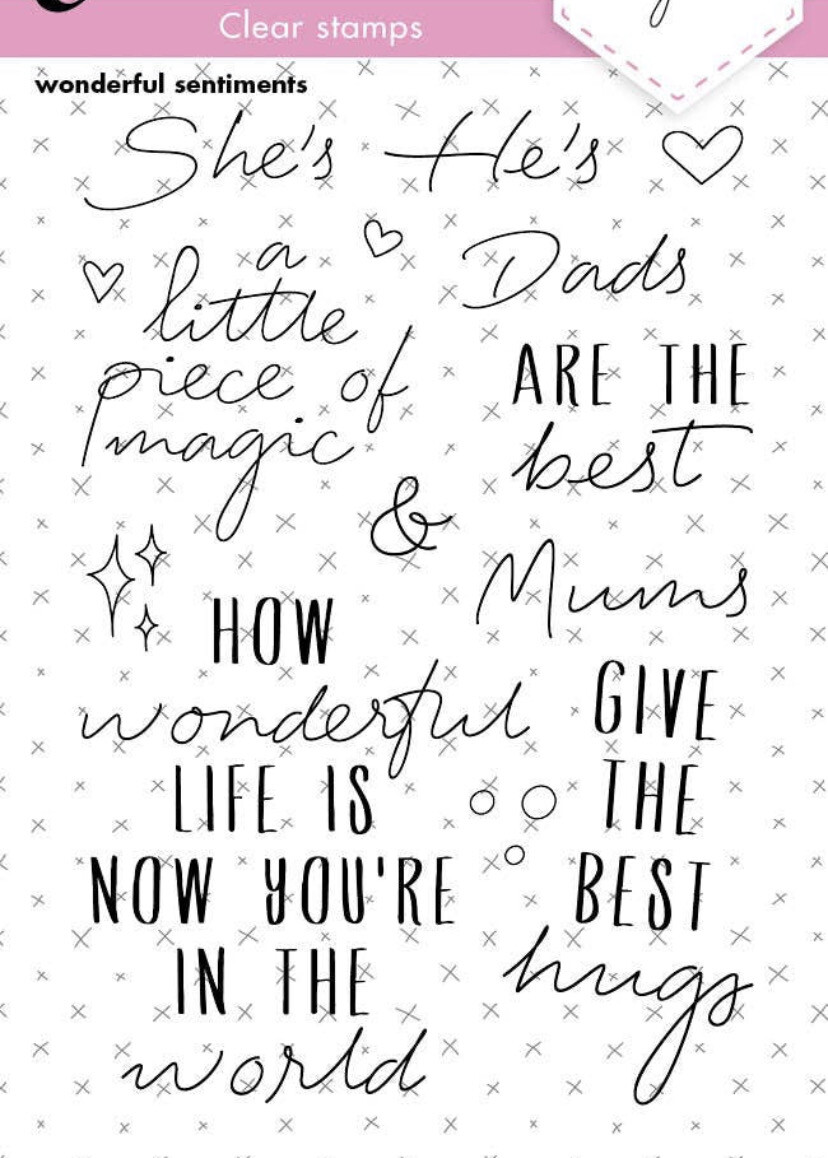 Clear stamps
wonderful sentiments
She's He's
a
little
piece of
magic
Dads
ARE THE
best
&
Mums
HOW
wonderful
LIFE IS
NOW YOU'RE
IN THE
world
GIVE
THE
BEST
hugs